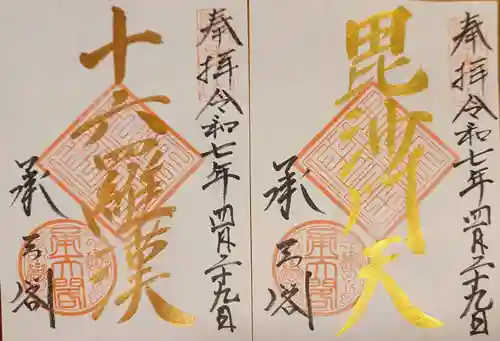 奉拝 令和七年四月二十九日
毘沙門天
承天閣
奉拝 令和七年四月二十九日
十六羅漢
承天閣